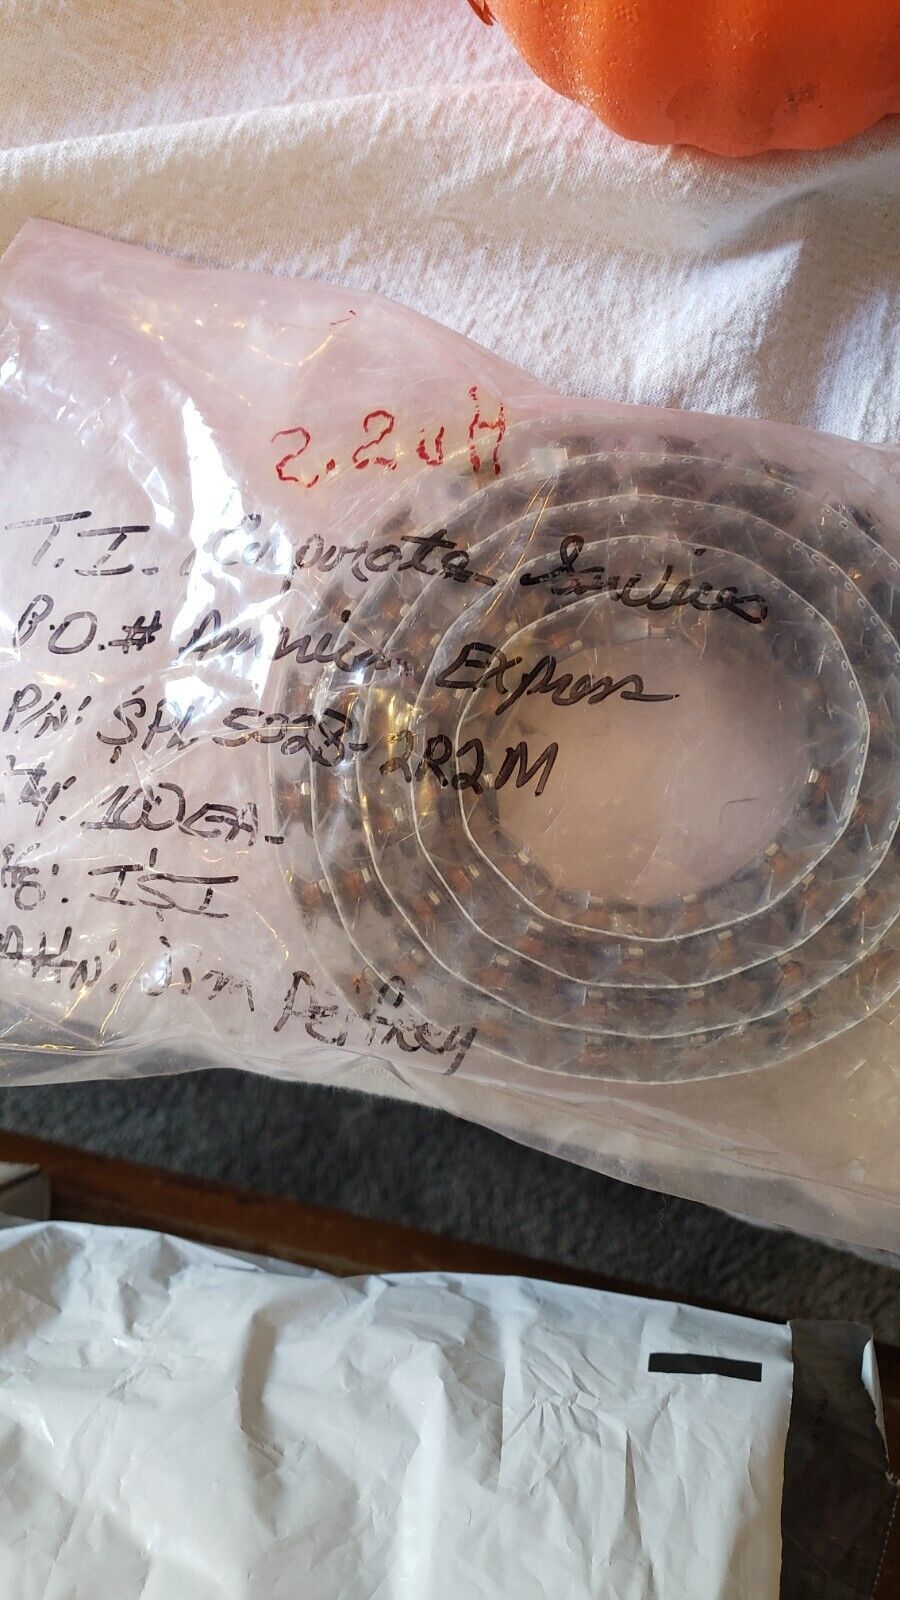 2.2uH
T.I. Corporate Services
P.O.# American Express
P/N: SPL 5028-2R2M
ty: 100EA.
o: ISI
Attn: Jim Peffrey